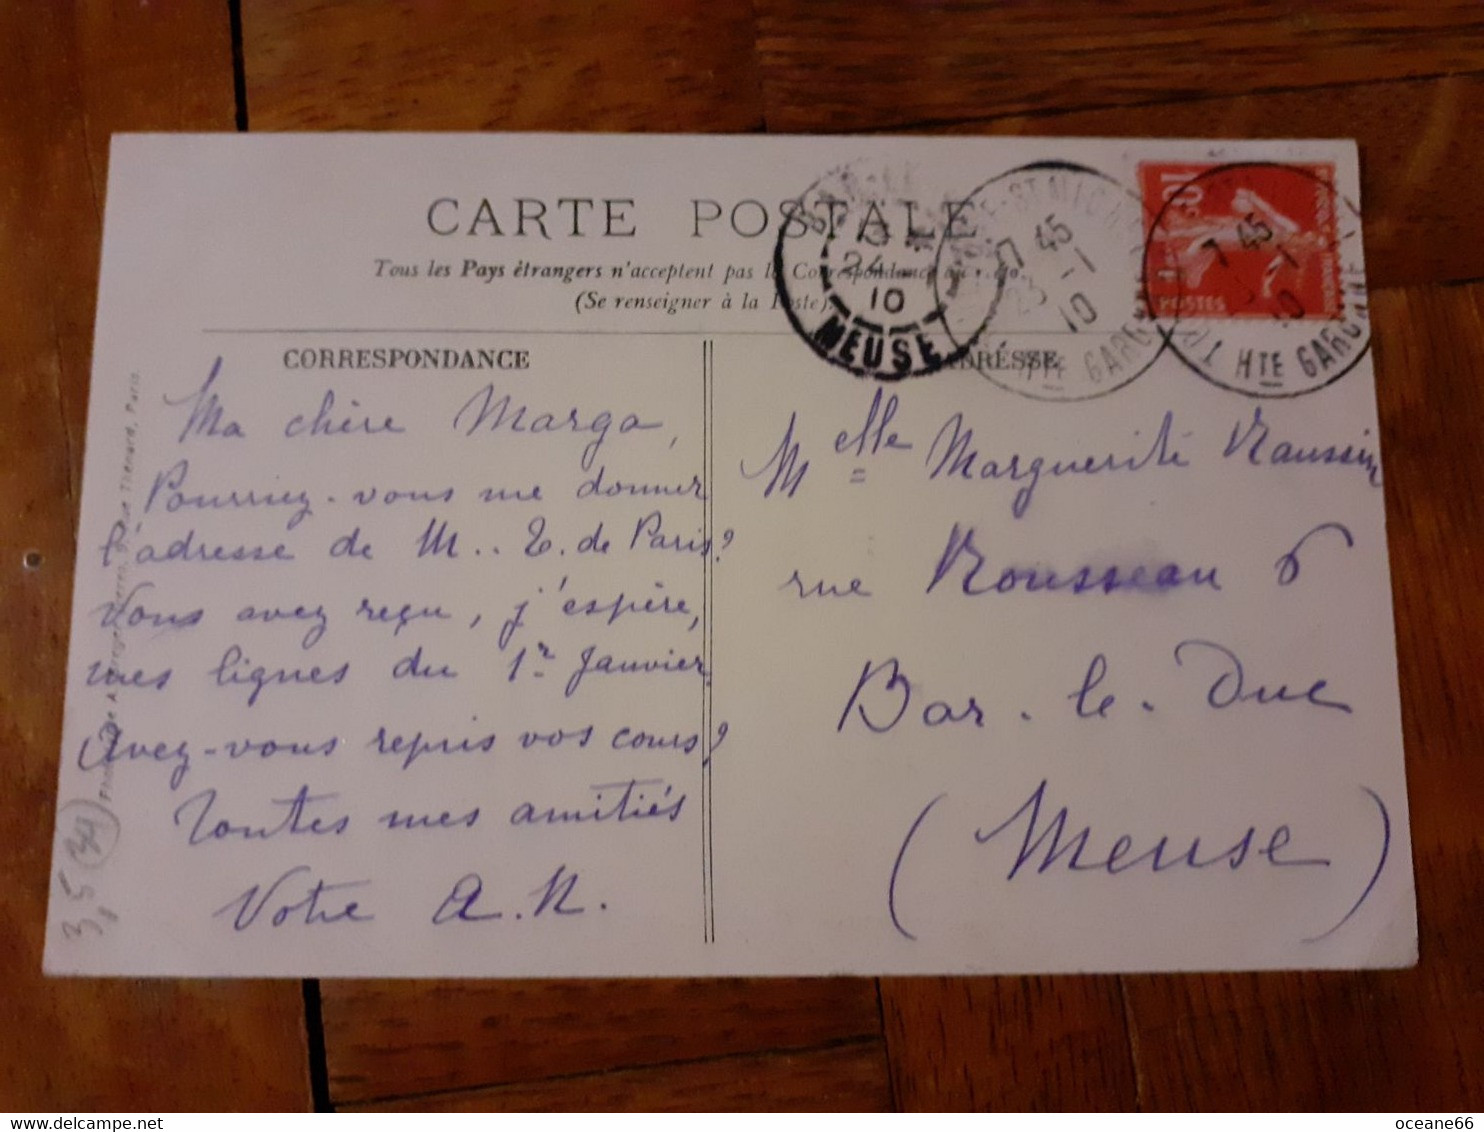 CARTE POSTALE
Tous les Pays étrangers n'acceptent pas la Correspondance au
(Se renseigner à la Poste).
CORRESPONDANCE
Ma chère Marga,
Pourriez-vous me donner
l'adresse de M.. T. de Paris?
Vous avez reçu, j'espère,
mes lignes du 1r Janvier.
Avez-vous repris vos cours?
Toutes mes amitiés
Votre A.R.
ADRESSE
Melle Marguerite Raussin
rue Rousseau 6
Bar-le-Duc
(Meuse)
BAR-LE
24
10
MEUSE
ST MICHEL
7 45
23-1
10
HTE GARONNE
10
POSTES
7 45
10
HTE GARONNE
rue Thénard, Paris.
3,5 (34)
oceane66